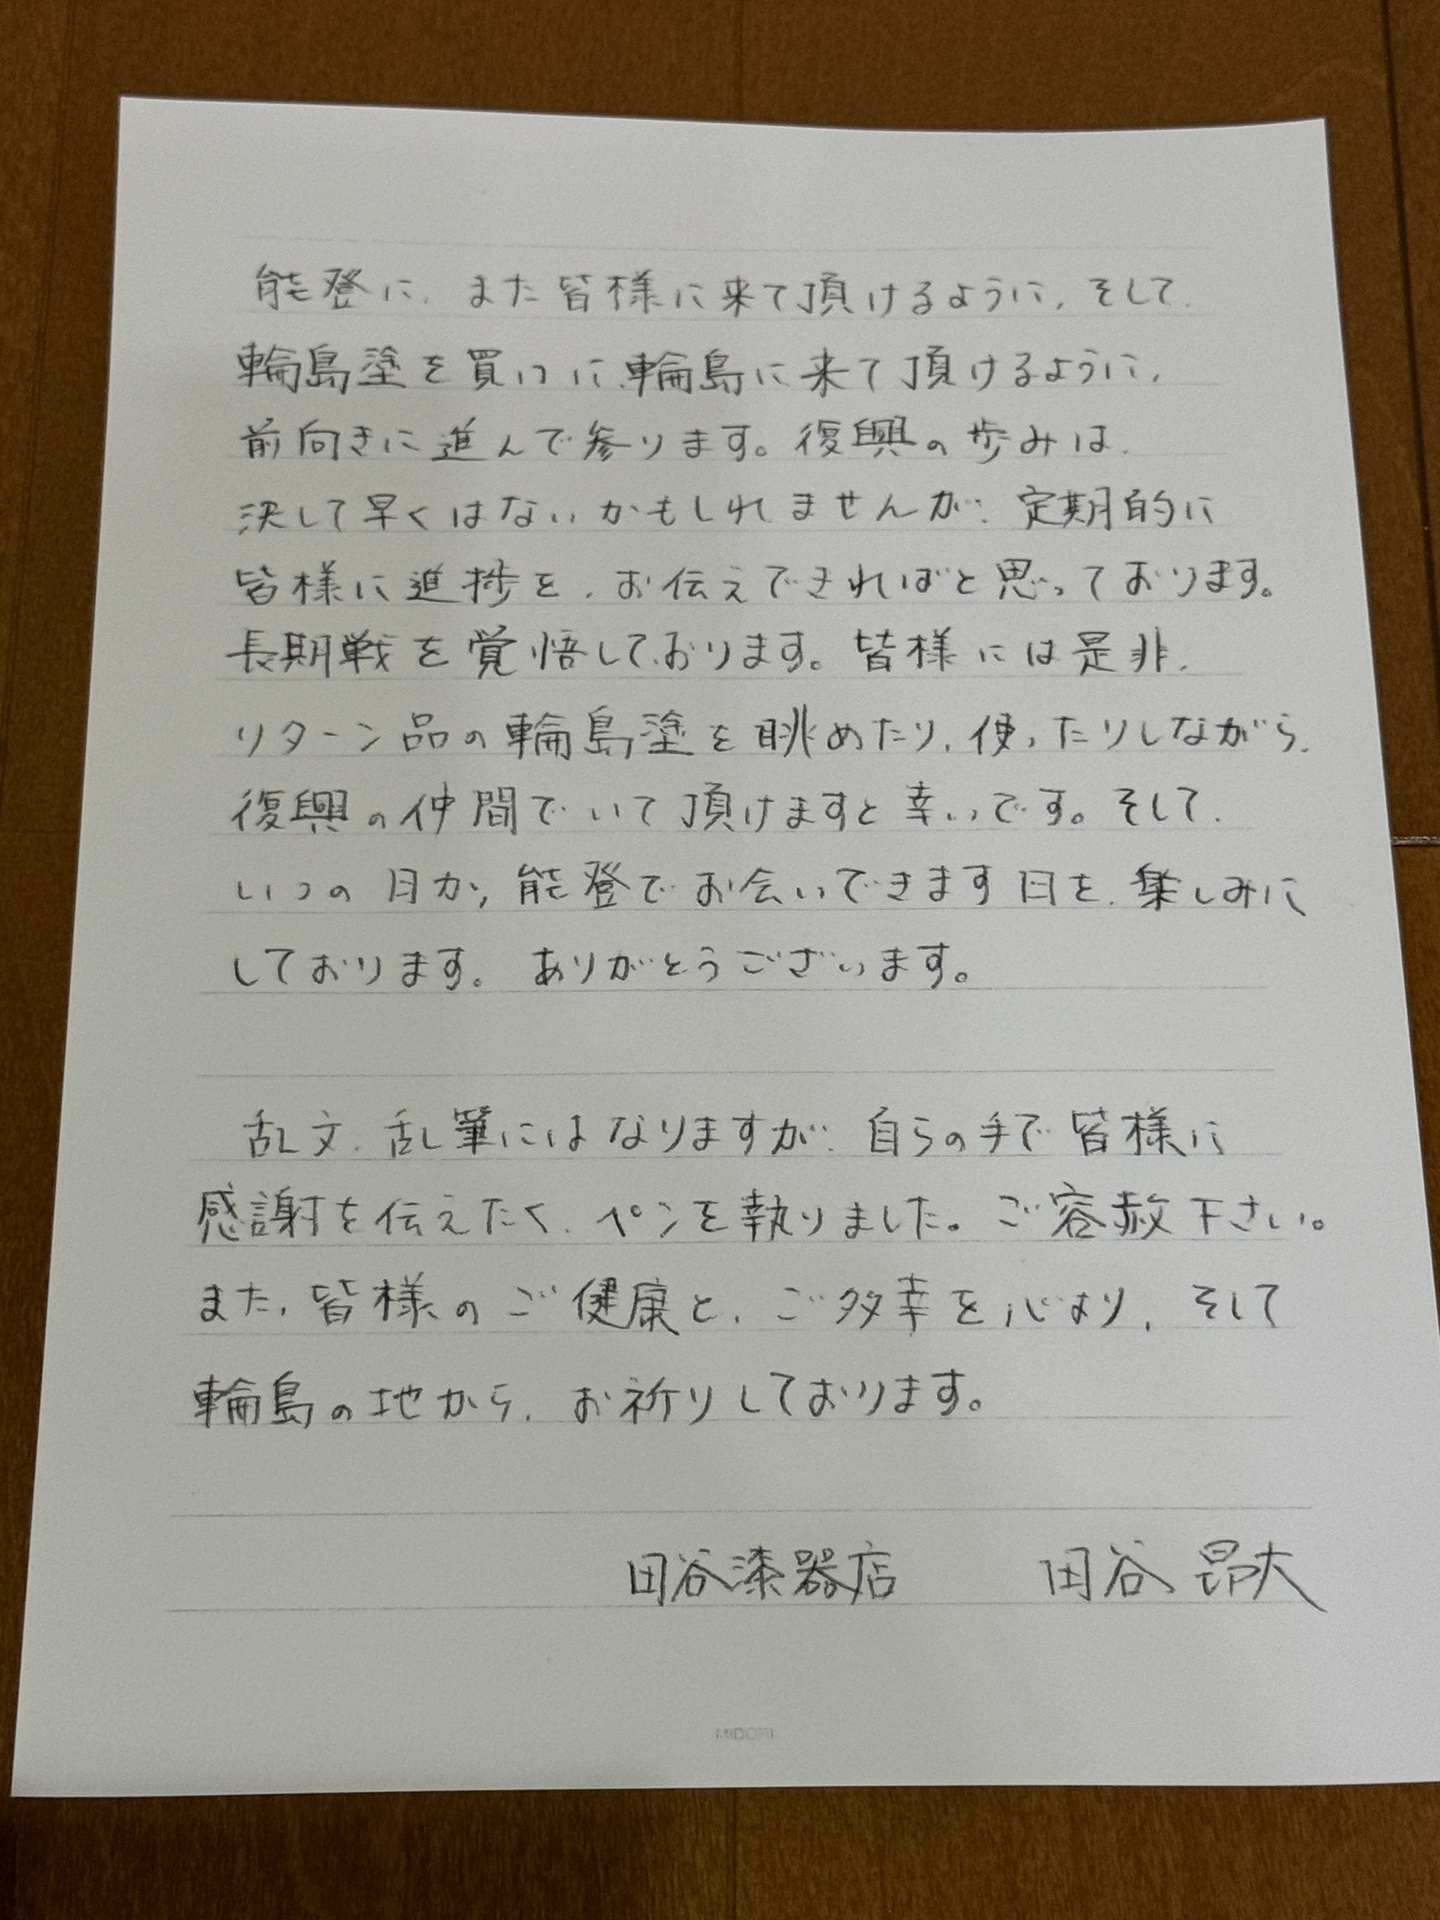 能登に、また皆様に来て頂けるように、そして、
輪島塗を買いに、輪島に来て頂けるように、
前向きに進んで参ります。復興の歩みは、
決して早くはないかもしれませんが、定期的に
皆様に進捗を、お伝えできればと思っております。
長期戦を覚悟しております。皆様には是非、
リターン品の輪島塗を眺めたり、使ったりしながら、
復興の仲間でいて頂けますと幸いです。そして、
いつの日か、能登でお会いできます日を、楽しみに
しております。ありがとうございます。
乱文、乱筆にはなりますが、自らの手で皆様に
感謝を伝えたく、ペンを執りました。ご容赦下さい。
また、皆様のご健康と、ご多幸を心より、そして
輪島の地から、お祈りしております。
田谷漆器店 田谷 昂大
MIDORI